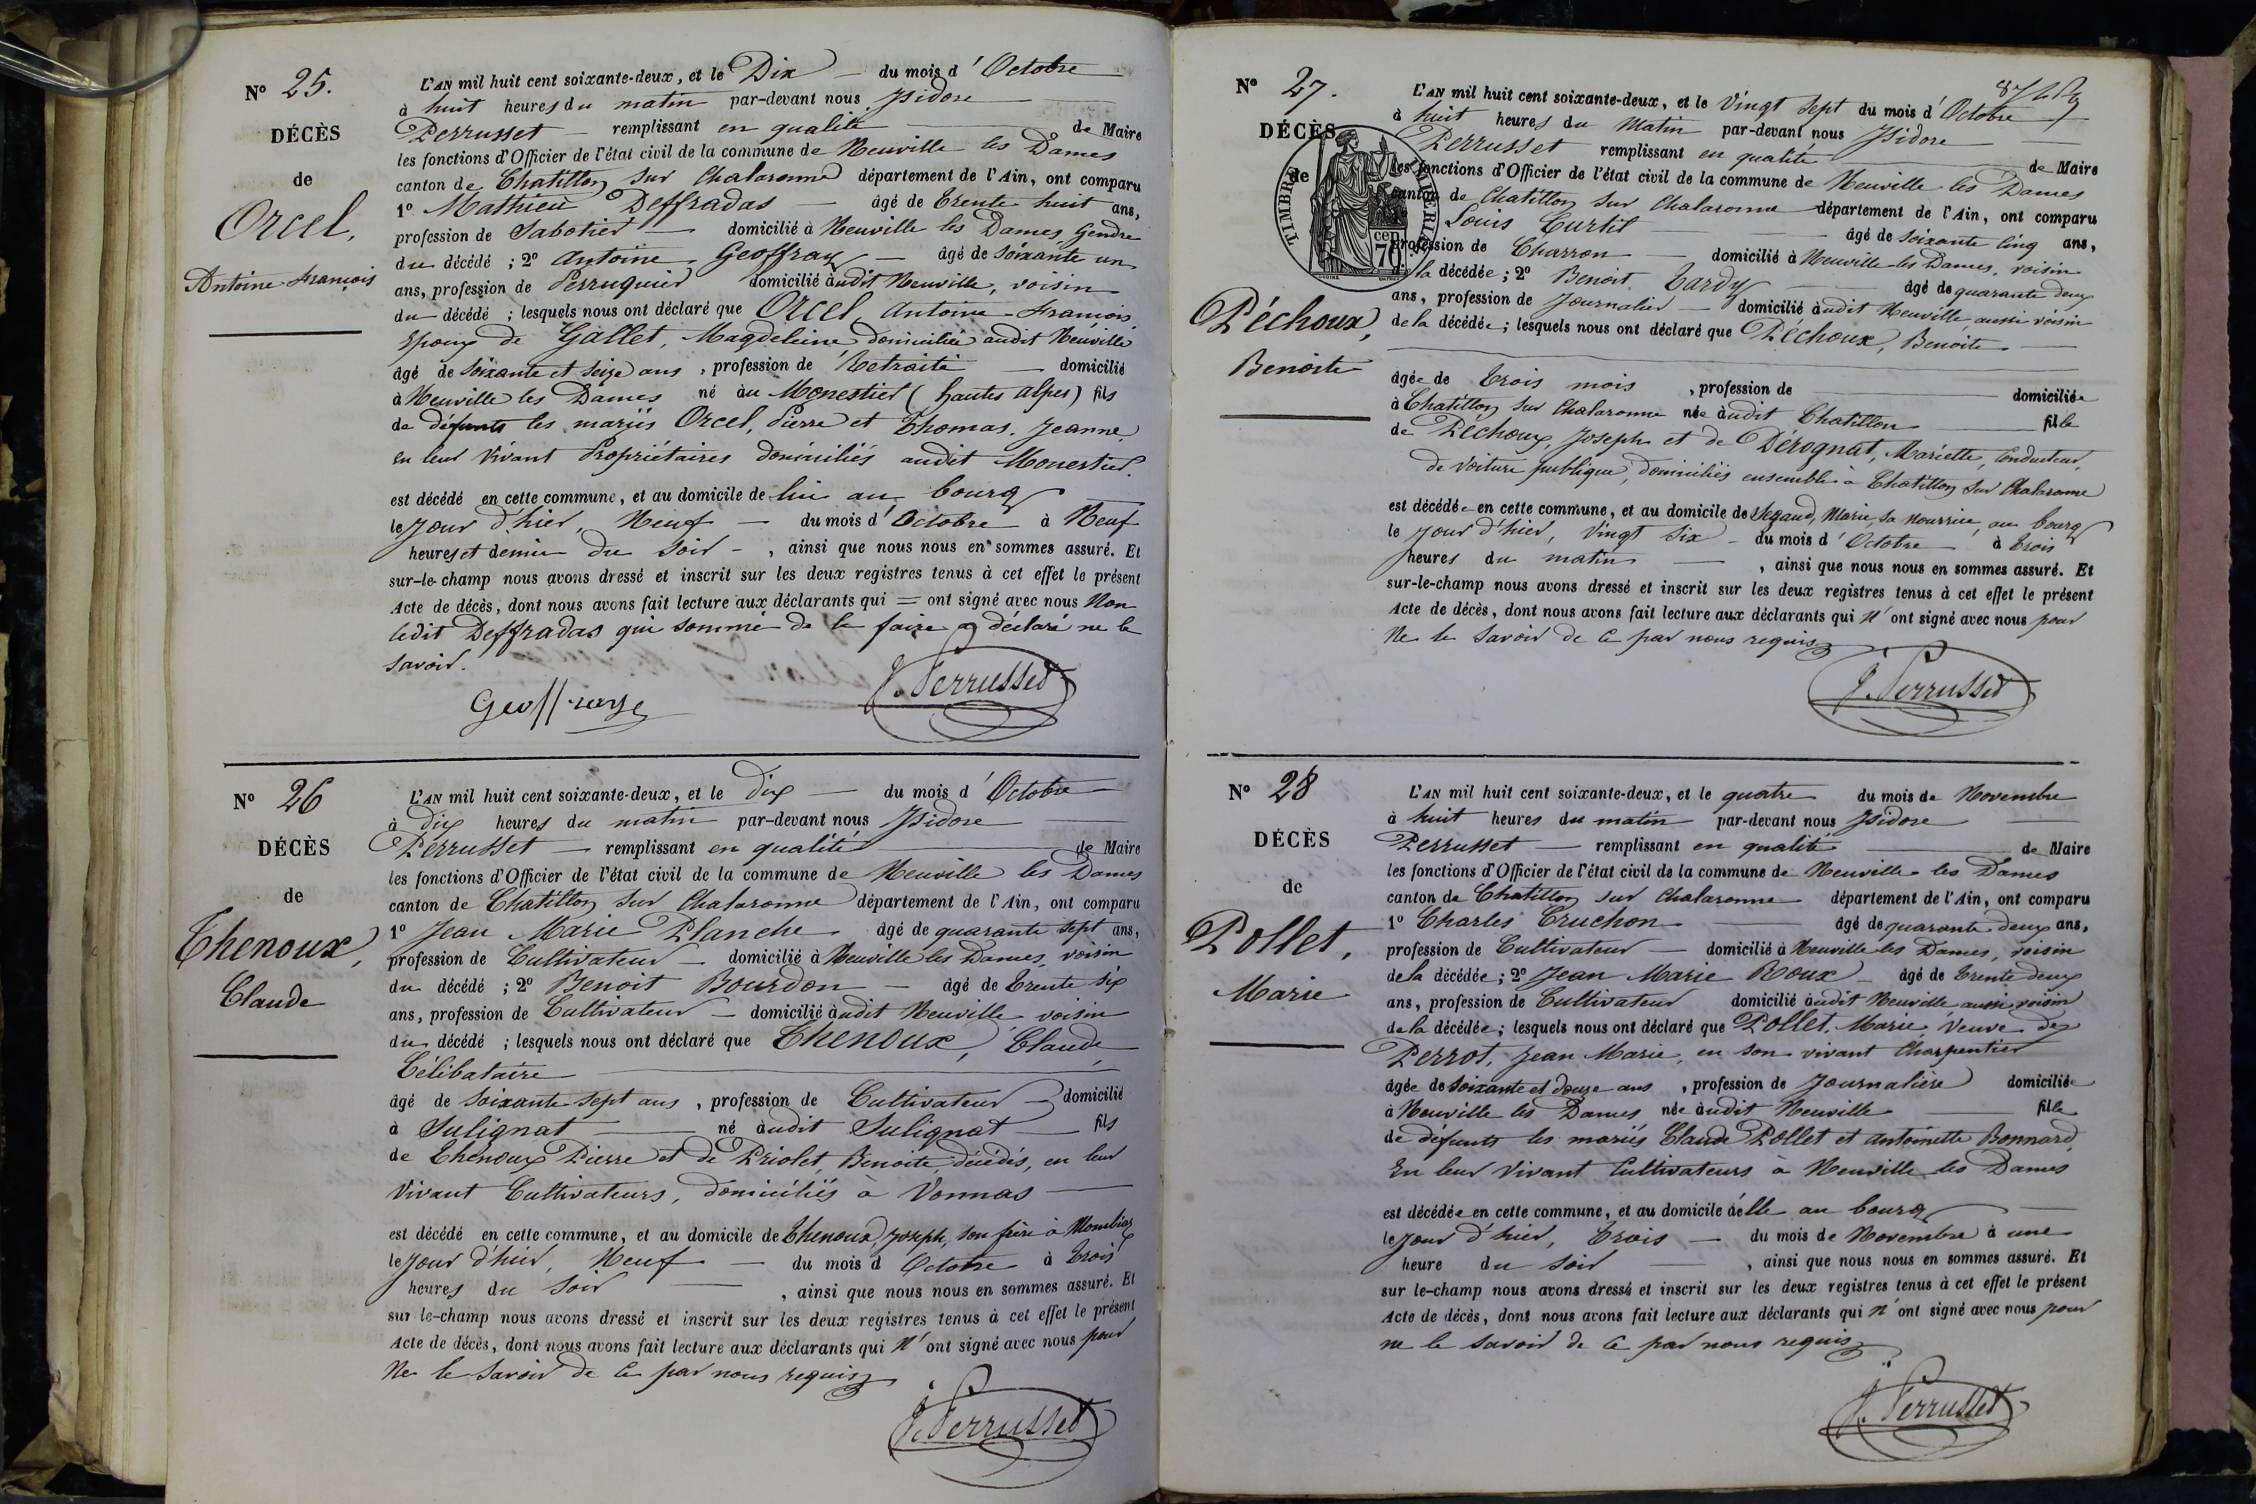 N° 25.
DÉCÈS
de
Orcel,
Antoine François
L'AN mil huit cent soixante-deux, et le Dix du mois d'Octobre
à huit heures du matin par-devant nous Isidore
Perrusset remplissant en qualité de Maire
les fonctions d'Officier de l'état civil de la commune de Neuville les Dames
canton de Chatillon sur Chalaronne département de l'Ain, ont comparu
1° Mathieu Deffradas âgé de trente huit ans,
profession de Sabotier domicilié à Neuville les Dames, Gendre
du décédé ; 2° Antoine Geoffray âgé de soixante un
ans, profession de Perruquier domicilié audit Neuville, voisin
du décédé ; lesquels nous ont déclaré que Orcel, Antoine François,
Epoux de Gallet, Magdeleine domiciliée audit Neuville
âgé de soixante et seize ans, profession de Retraité domicilié
à Neuville les Dames né au Monestier (hautes alpes) fils
de défunts les mariés Orcel, Pierre et Thomas, Jeanne,
en leur Vivant Propriétaires domiciliés audit Monestier.
est décédé en cette commune, et au domicile de lui au bourg
le jour d'hier, Neuf du mois d'Octobre à Neuf
heures et demie du soir, ainsi que nous nous en sommes assuré. Et
sur-le-champ nous avons dressé et inscrit sur les deux registres tenus à cet effet le présent
Acte de décès, dont nous avons fait lecture aux déclarants qui = ont signé avec nous Non
ledit Deffradas qui sommé de le faire a déclaré ne le
savoir.
Geoffraye
J. Perrusset
N° 26
DÉCÈS
de
Thenoux,
Claude
L'AN mil huit cent soixante-deux, et le dix du mois d'Octobre
à dix heures du matin par-devant nous Isidore
Perrusset remplissant en qualité de Maire
les fonctions d'Officier de l'état civil de la commune de Neuville les Dames
canton de Chatillon sur Chalaronne département de l'Ain, ont comparu
1° Jean Marie Planche âgé de quarante sept ans,
profession de Cultivateur domicilié à Neuville les Dames, voisin
du décédé ; 2° Benoit Bourdon âgé de trente six
ans, profession de Cultivateur domicilié audit Neuville voisin
du décédé ; lesquels nous ont déclaré que Thenoux, Claude,
Célibataire
âgé de soixante sept ans, profession de Cultivateur domicilié
à Sulignat né audit Sulignat fils
de Thenoux Pierre et de Priolet, Benoite, décédés, en leur
vivant Cultivateurs, domiciliés à Vonnas
est décédé en cette commune, et au domicile de Thenoux, Joseph, son frère à
le jour d'hier, Neuf du mois d'Octobre à trois
heures du soir, ainsi que nous nous en sommes assuré. Et
sur-le-champ nous avons dressé et inscrit sur les deux registres tenus à cet effet le présent
Acte de décès, dont nous avons fait lecture aux déclarants qui n'ont signé avec nous pour
ne le savoir de ce par nous requis
J. Perrusset
N° 27.
DÉCÈS
de
Péchoux,
Benoite
TIMBRE IMPÉRIAL
70 cen
L'AN mil huit cent soixante-deux, et le vingt sept du mois d'Octobre
à huit heures du Matin par-devant nous Isidore
Perrusset remplissant en qualité de Maire
les fonctions d'Officier de l'état civil de la commune de Neuville les Dames
canton de Chatillon sur Chalaronne département de l'Ain, ont comparu
Louis Curtil âgé de soixante cinq ans,
profession de Charron domicilié à Neuville les Dames, voisin
de la décédée ; 2° Benoit Tardy âgé de quarante deux
ans, profession de Journalier domicilié audit Neuville aussi voisin
de la décédée ; lesquels nous ont déclaré que Péchoux, Benoite
âgée de trois mois, profession de domiciliée
à Chatillon sur Chalaronne née audit Chatillon fille
de Péchoux, Joseph et de Dérognat, Mariette, Conducteur
de voiture publique, domiciliés ensemble à Chatillon sur Chalaronne
est décédée en cette commune, et au domicile de Segaud, Marie, sa nourrice, au bourg
le jour d'hier, vingt six du mois d'Octobre à trois
heures du matin, ainsi que nous nous en sommes assuré. Et
sur-le-champ nous avons dressé et inscrit sur les deux registres tenus à cet effet le présent
Acte de décès, dont nous avons fait lecture aux déclarants qui n'ont signé avec nous pour
ne le savoir de ce par nous requis
J. Perrusset
N° 28
DÉCÈS
de
Pollet,
Marie
L'AN mil huit cent soixante-deux, et le quatre du mois de Novembre
à huit heures du matin par-devant nous Isidore
Perrusset remplissant en qualité de Maire
les fonctions d'Officier de l'état civil de la commune de Neuville les Dames
canton de Chatillon sur Chalaronne département de l'Ain, ont comparu
1° Charles Cruchon âgé de quarante deux ans,
profession de Cultivateur domicilié à Neuville les Dames, voisin
de la décédée ; 2° Jean Marie Roux âgé de trente deux
ans, profession de Cultivateur domicilié audit Neuville aussi voisin
de la décédée ; lesquels nous ont déclaré que Pollet, Marie, veuve de
Perrot, Jean Marie, en son vivant Charpentier
âgée de soixante et douze ans, profession de Journalière domiciliée
à Neuville les Dames née audit Neuville fille
de défunts les mariés Claude Pollet et Antoinette Bonnard,
En leur Vivant Cultivateurs à Neuville les Dames
est décédée en cette commune, et au domicile d'elle au bourg
le jour d'hier, trois du mois de Novembre à une
heure du soir, ainsi que nous nous en sommes assuré. Et
sur le-champ nous avons dressé et inscrit sur les deux registres tenus à cet effet le présent
Acte de décès, dont nous avons fait lecture aux déclarants qui n'ont signé avec nous pour
ne le savoir de ce par nous requis
J. Perrusset